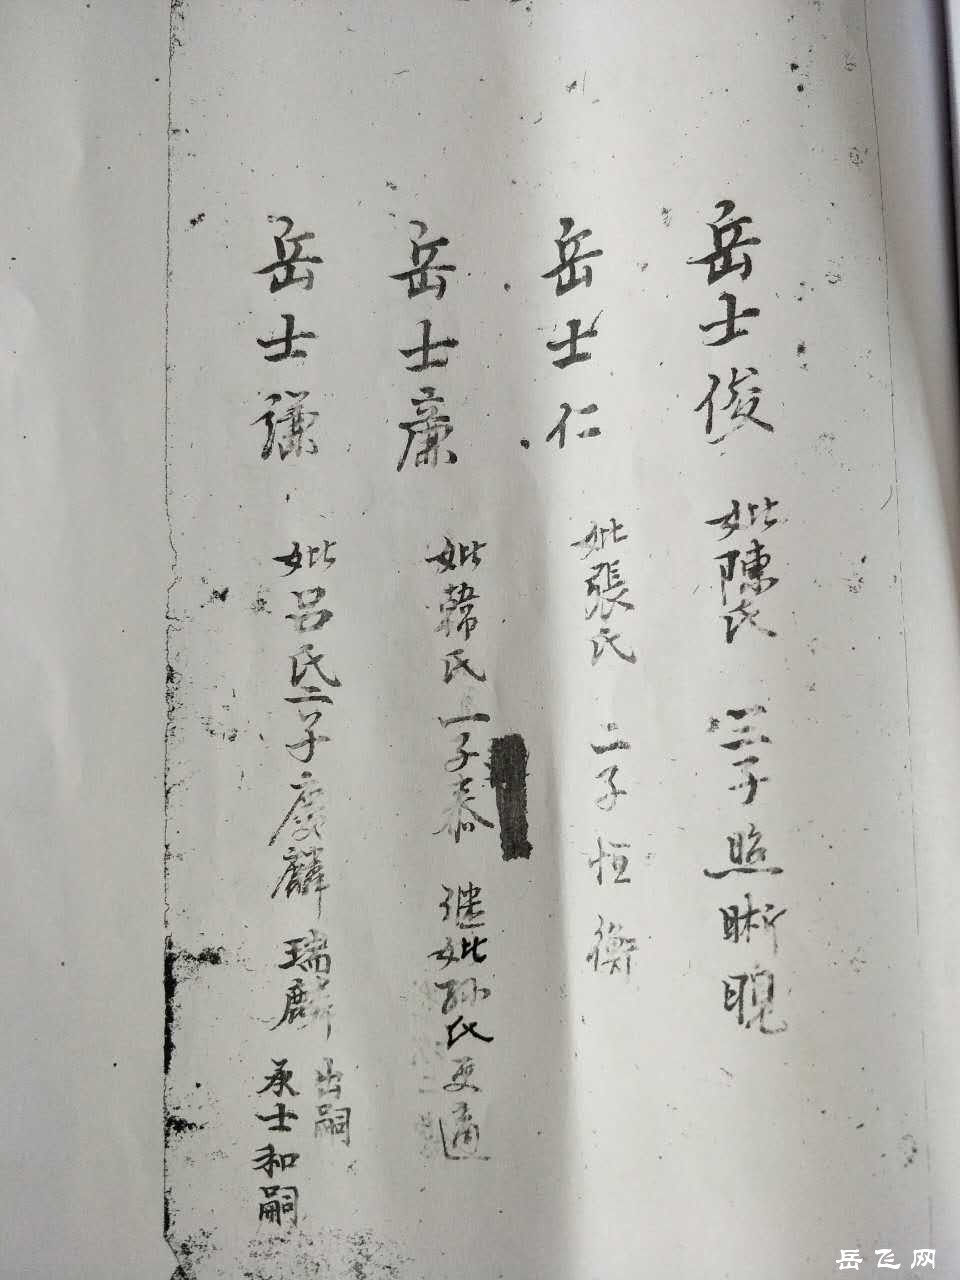 岳士俊 妣陳氏 三子照晰晛
岳士仁 妣張氏 二子恒衡
岳士廉 妣韓氏 一子泰 继妣孫氏更適
岳士謙 妣吕氏二子慶麟 瑞麟 出嗣 承士和嗣
岳飞网